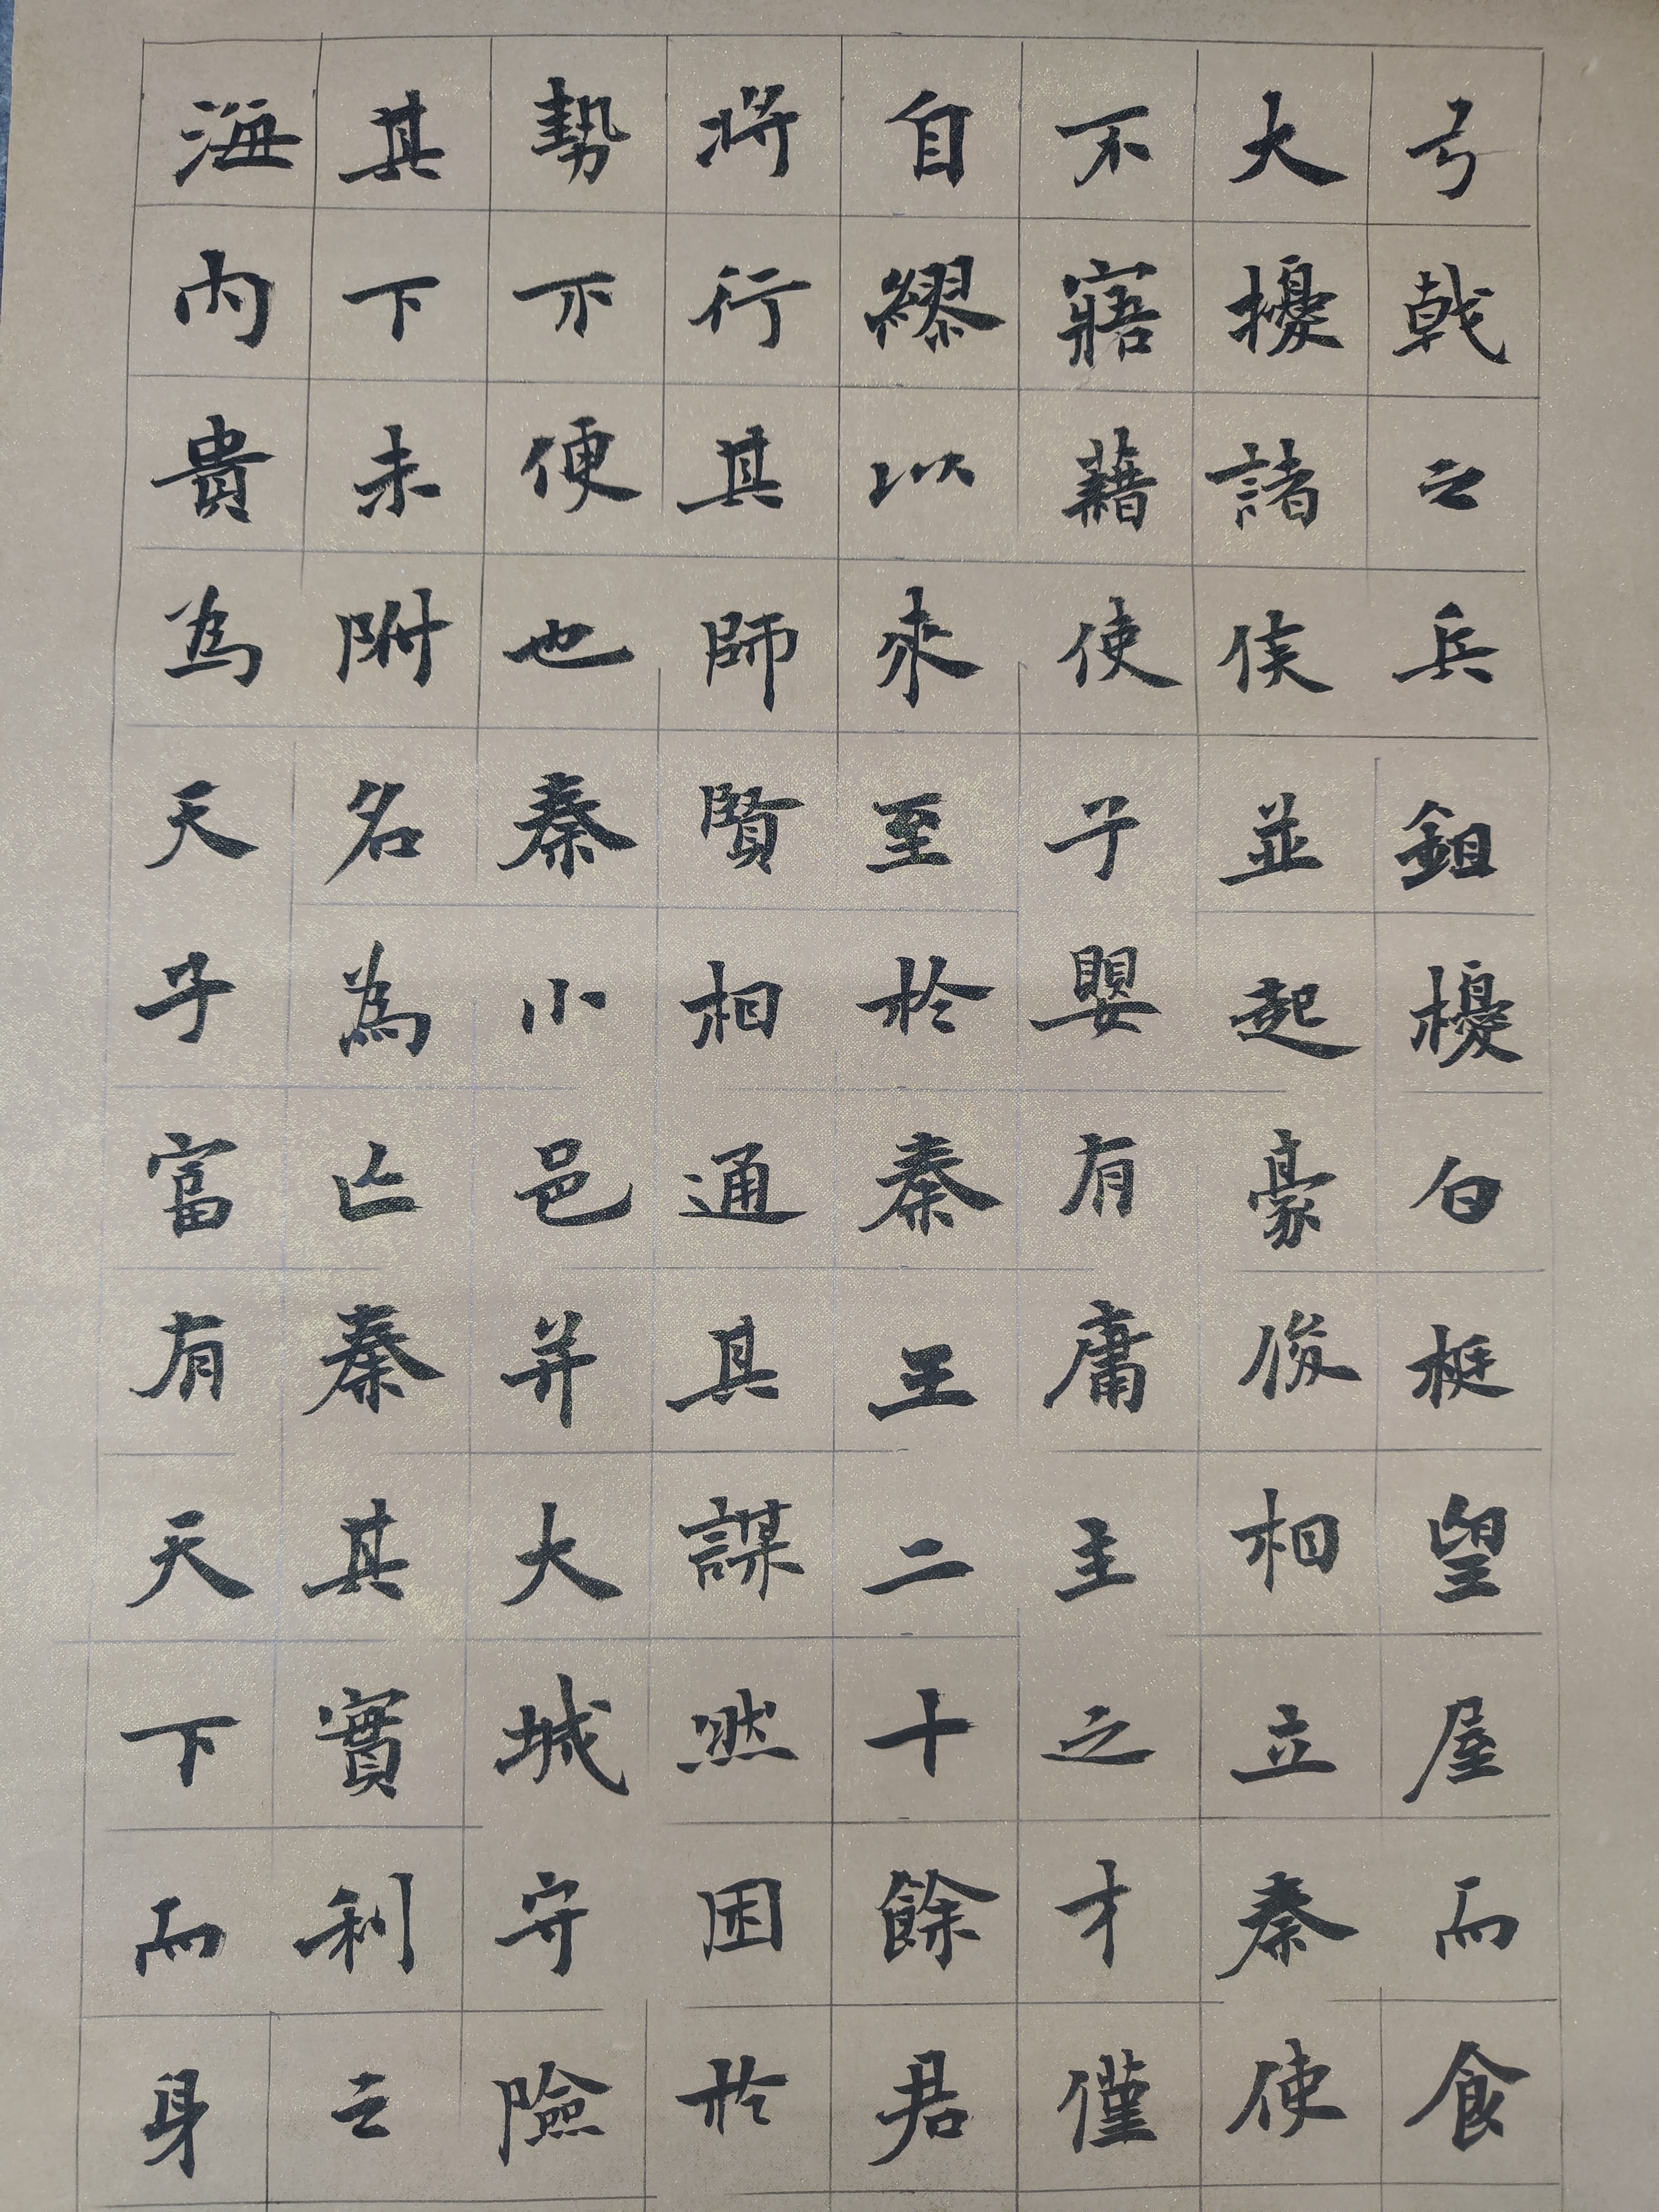 弓戟之兵鉏櫌白梃望屋而食
大擾諸侯並起豪俊相立秦使
不寤藉使子嬰有庸主之才僅
自繆以來至於秦王二十餘君
將行其師賢相通其謀然困於
勢不便也秦小邑并大城守險
其下未附名為亡秦其實利之
海內貴為天子富有天下而身